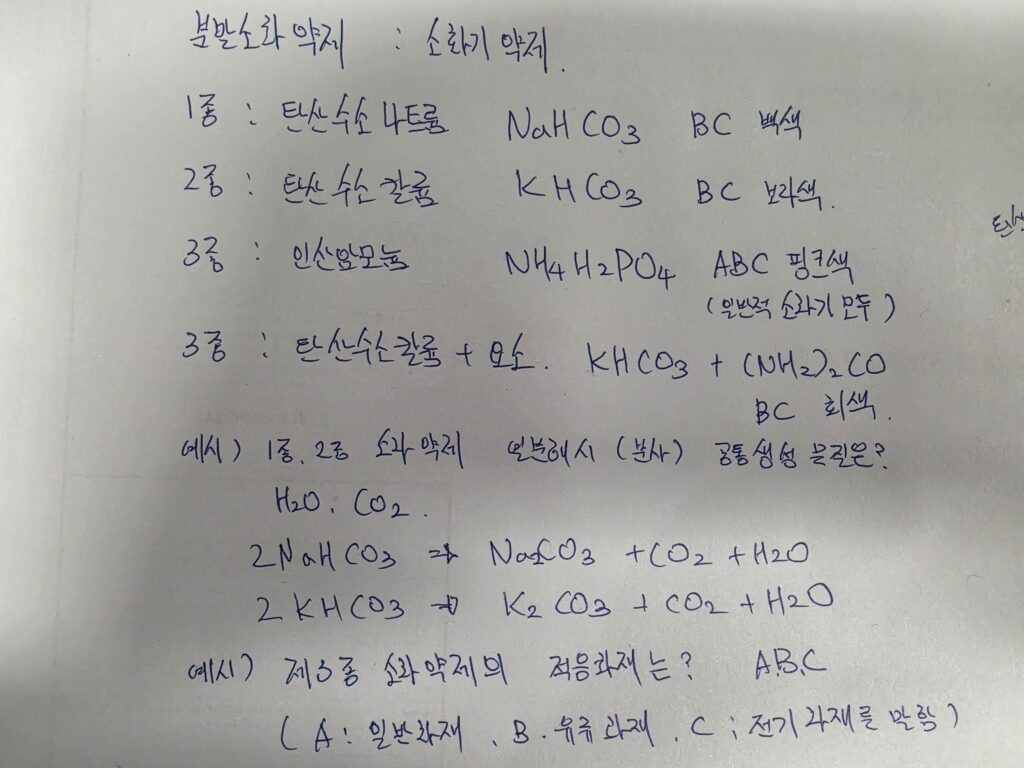 분말소화약제 : 소화기 약제.
1종 : 탄산수소나트륨 NaHCO3 BC 백색
2종 : 탄산수소칼륨 KHCO3 BC 보라색.
탄산
3종 : 인산암모늄 NH4H2PO4 ABC 핑크색
(일반적 소화기 모두)
3종 : 탄산수소칼륨 + 요소. KHCO3 + (NH2)2CO
BC 회색.
예시) 1종, 2종 소화약제 열분해시 (분사) 공통생성 물질은?
H2O, CO2.
2NaHCO3 → Na2CO3 + CO2 + H2O
2KHCO3 → K2CO3 + CO2 + H2O
예시) 제3종 소화약제의 적응화재는? A.B.C
(A: 일반화재, B. 유류화재, C: 전기화재를 말함)